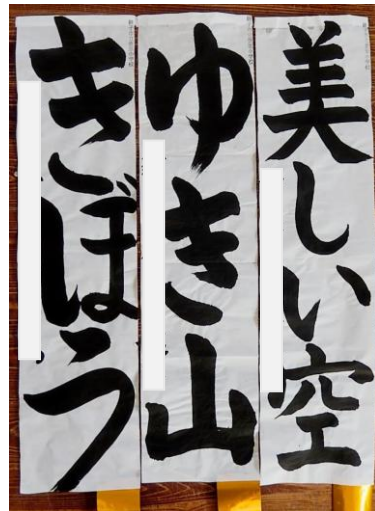 美しい空
ゆき山
きぼう